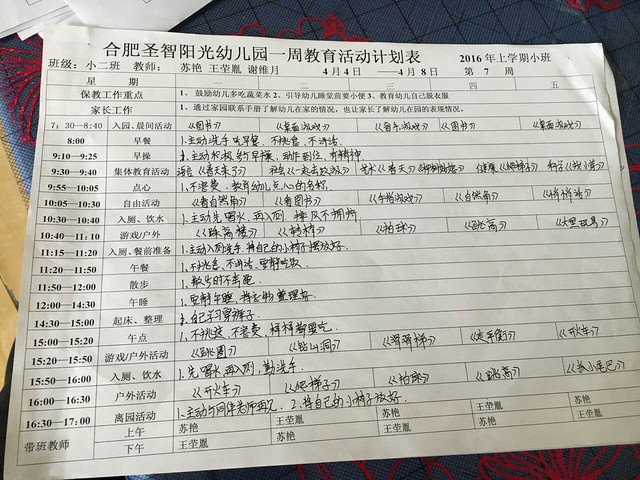 合肥圣智阳光幼儿园一周教育活动计划表
班级：小二班 教师： 苏艳 王莹胤 谢维月 4月4日——4月8日 第 7 周 2016年上学期小班
星 期 一 二 三 四 五
保教工作重点 1、鼓励幼儿多吃蔬菜水 2、引导幼儿睡觉前要小便 3、教育幼儿自己脱衣服
家长工作 1、通过家园联系手册了解幼儿在家的情况，也让家长了解幼儿在园的表现情况。
7：30—8:40 入园、晨间活动 《图书》 《桌面游戏》 《音乐游戏》 《图书》 《桌面游戏》
8:00 早餐 1、主动洗手吃早餐，不挑食、不讲话。
9:10—9:25 早操 1、主动积极做早操，动作到位，有精神。
9:30—9:40 集体教育活动 语言《春天来了》 社会 艺术《春天》 健康《爬梯子》 科学《找小动》
9:55—10:05 点心 1、不浪费，教育幼儿点心的名称。
10:05—10:30 自由活动 《看自然角》 《看图书》 《手指游戏》 《自然角》
10:30—10:40 入厕、饮水 1、主动先喝水，再入厕，排队不拥挤。
10:40—11:10 游戏/户外 《跳高楼》 《转转》 《拍球》 《跳高》 《大型玩具》
11:15—11:20 入厕、餐前准备 1、主动入厕洗手，将自己的小椅子摆放好。
11:20—11:50 午餐 1、不挑食、不讲话，安静吃饭
11:50—12:00 散步 1、散步时不乱跑。
12:00—14:30 午睡 1、安静午睡，将衣物整理好。
14:30—15:00 起床、整理 1、自己学习穿裤子。
15:00—15:20 午点 1、不挑选，不浪费，样样都要吃。
15:20—15:50 游戏/户外活动 《跳圈》 《钻山洞》 《滑滑梯》 《走平衡》 《开火车》
15:50—16:00 入厕、饮水 1、先喝水再入厕，勤洗手。
16:00—16:30 户外活动 《开火车》 《爬梯子》 《拍球》 《跳高》 《揪小尾巴》
16:30—17:00 离园活动 1、主动与同伴老师再见。 2、将自己的小椅子放好。
带班教师 上午 苏艳 王莹胤 苏艳 王莹胤 苏艳
下午 王莹胤 苏艳 王莹胤 苏艳 王莹胤